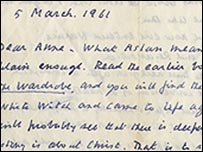 5 March. 1961
Dear Anne - What Aslan mean
plain enough. Read the earlier bo
the Wardrobe, and you will find the
White Witch and came to life aga
will probably see that there is deeper
story is about Christ. That is to s